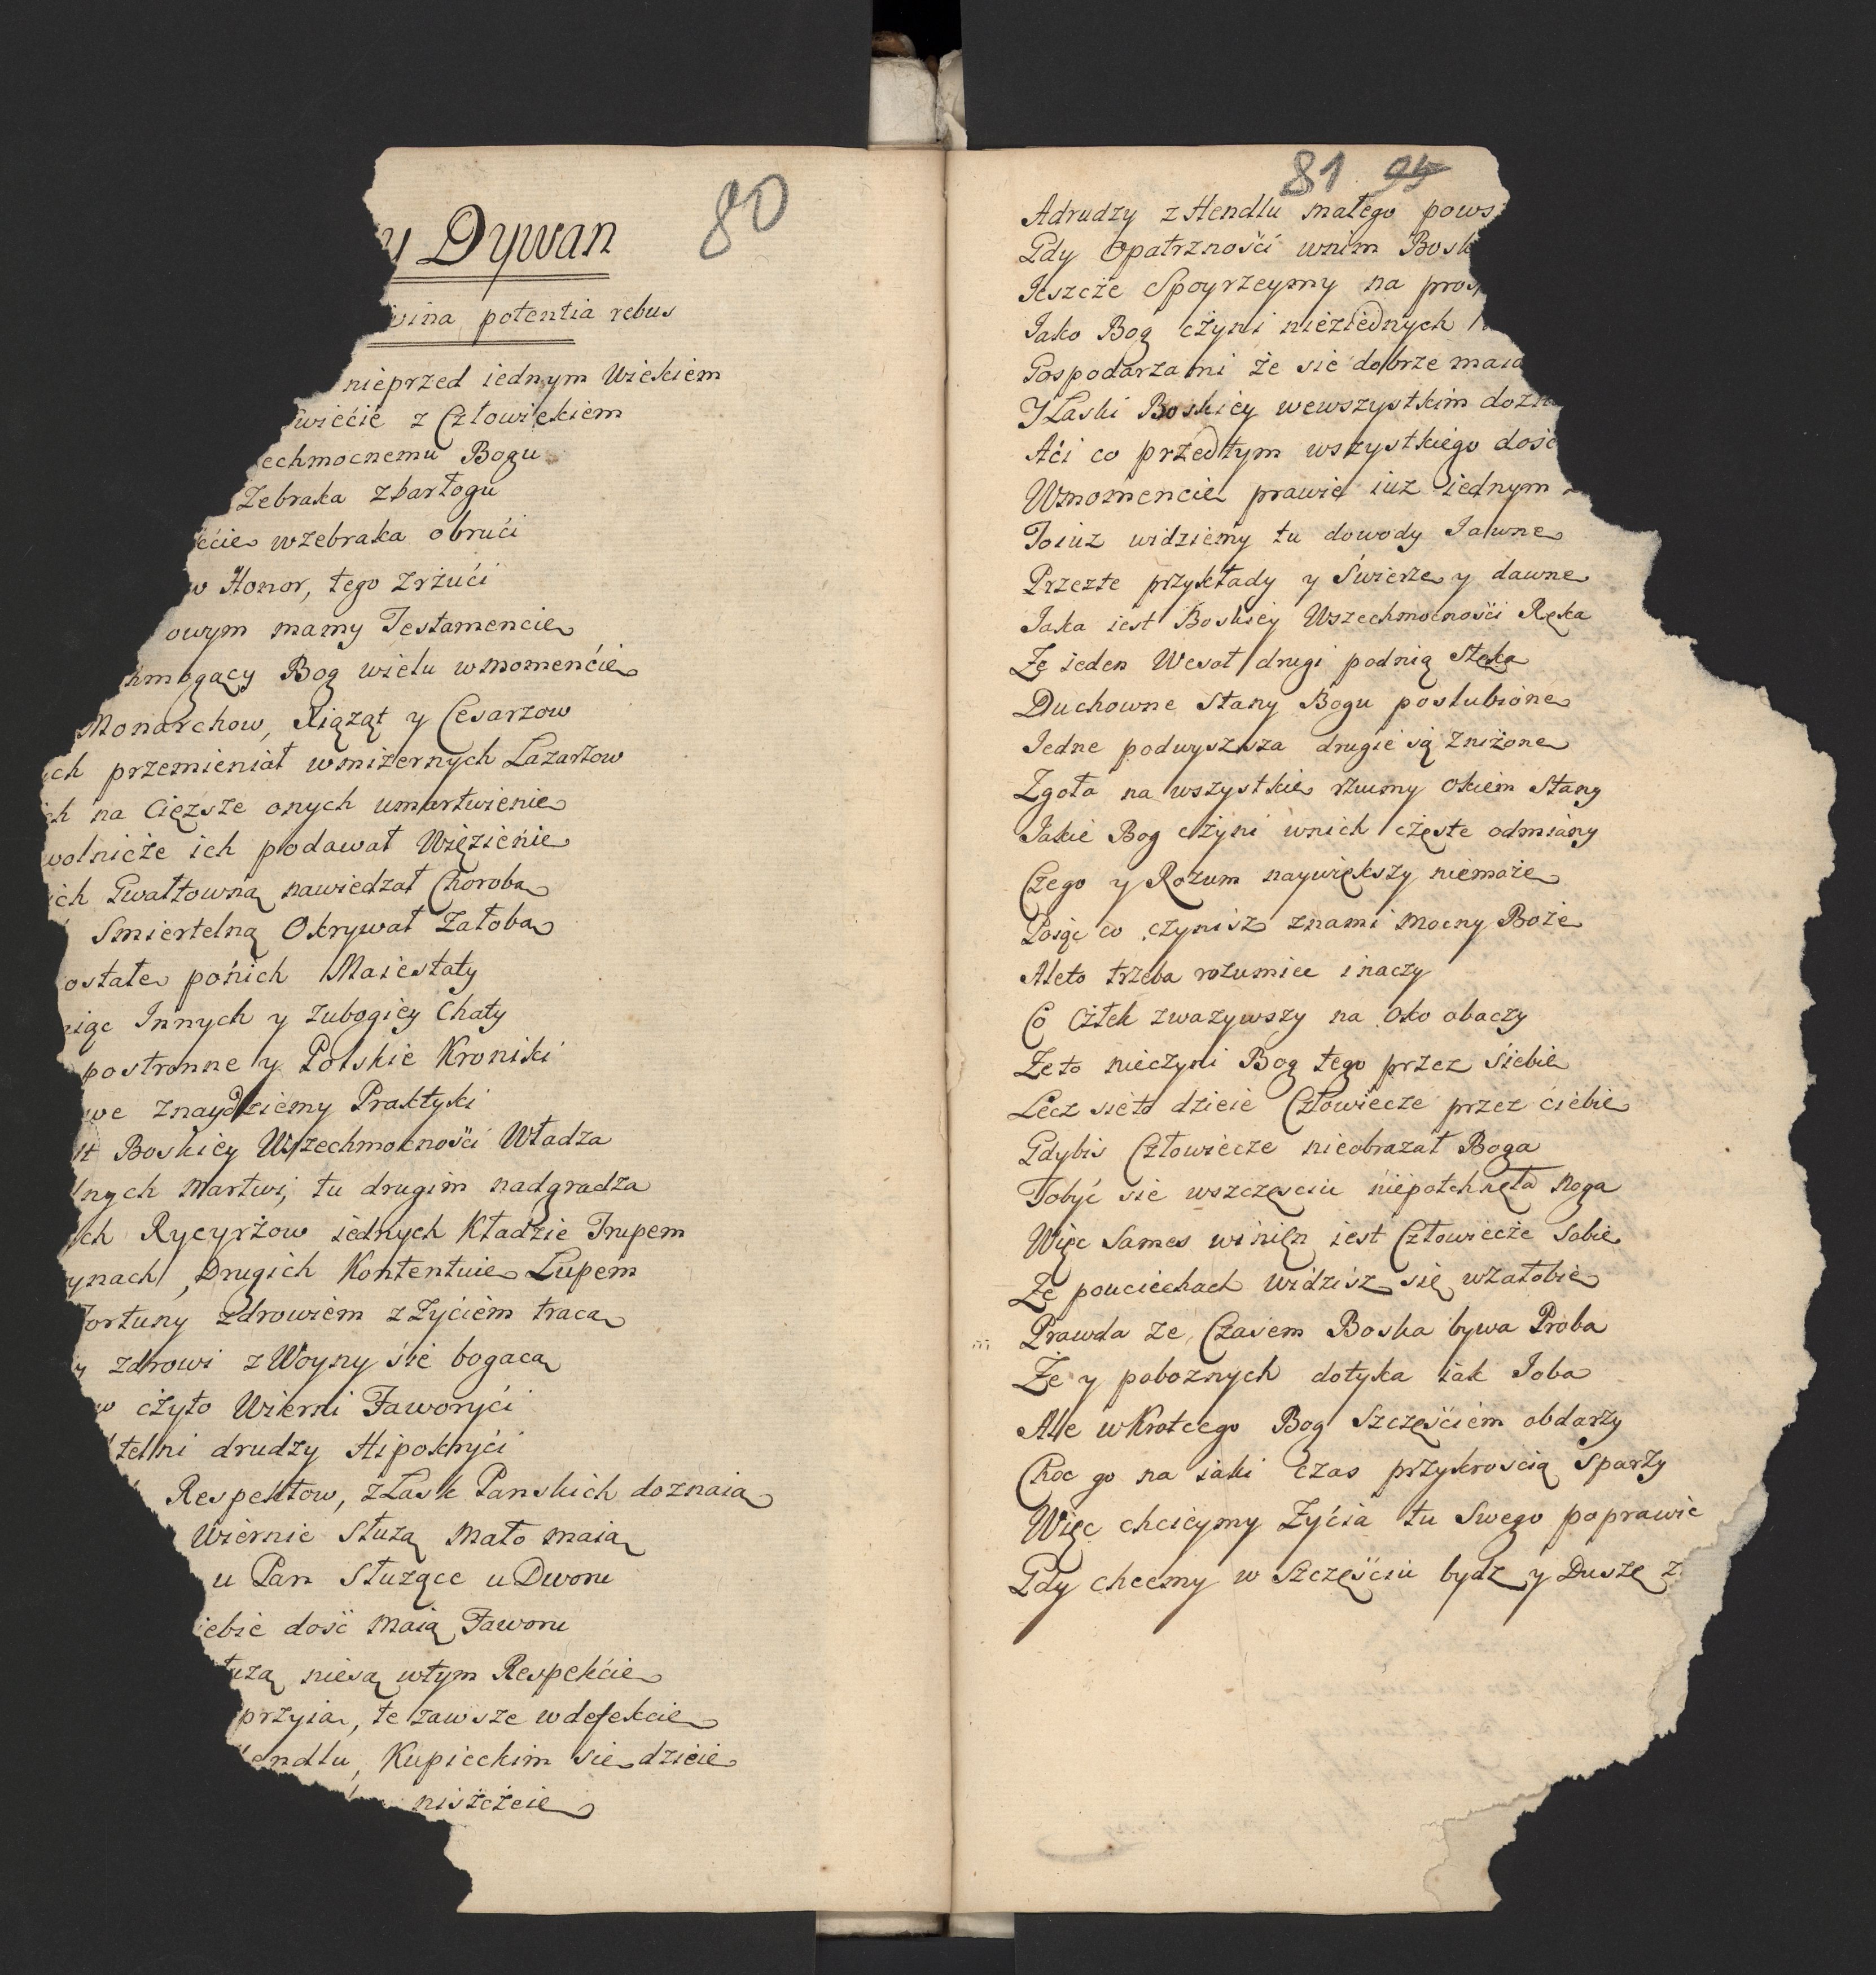 80
y Dywan
vina potentia rebus
nieprzed iednym Wiekiem
Swiećie z Człowiekiem
echmocnemu Bogu
Zebraka zbarłogu
ećie wzebraka obrući
w Honor, tego zrżući
owym mamy Testamencie
hmogący Bog wielu wmomenćie
Monarchow, Xiąząt y Cesarzow
ch przemieniał wmiżernych Lazarżow
ch na Cięzsze onych umartwienie
wolnicże ich podawał Więzienie
ich Gwałtowną nawiedzał Choroba
Smiertelną Okrywał Załoba
ostałe ponich Maiestaty
niąc Innych y zubogiey Chaty
postronne y Polskie Kroniki
we znaydziemy Praktyki
st Boskiey Wszechmocnosći Władza
nych Martwi, tu drugim nadgradza
ch Rycyrżow iednych Kładzie Trupem
ynach, Drugich Kontentuie Łupem
Fortuny zdrowiem z Zyciem traca
y zdrowi z Woyny sie bogacą
w cżyto Wierni Faworyći
telni drudzy Hipokryći
Respektow, z Lask Panskich doznaią
Wiernie Słuzą Mało maią
u Pan Słuzące u Dworu
iebie dosć maią Faworu
łuzą niesą wtym Respekćie
przyia, te zawsze wdefekcie
endlu, Kupieckim sie dzieie
nisżcżeie
81 95
Adrudzy z Hendlu małego pows
Gdy Opatrznosći wnim Bosk
Ieszcże Spoyrzeymy na pros
Iako Bog cżyni nieziednych
Gospodarzami że sie dobrze maia
Y Laski Boskiey wewszystkim dozn
Aći co przedtym wszystkiego dosć
Wmomencie prawie iuz iednym
Toiuz widziemy tu dowody Iawne
Przezte przykłady y Swierze y dawne
Iaka iest Boskiey Wszechmocnosći Ręka
Zę ieden Wesoł drugi podnią Stęka
Duchowne Stany Bogu poslubione
Iedne podwyszsza drugie są Zniżone
Zgoła na wszystkie rzucmy Okiem Stany
Iakie Bog cżyni wnich cżęste odmiany
Cżego y Rozum naywiększy niemoże
Poiąc co czynisz znami Mocny Boże
Aleto trzeba rozumiec inaczy
Co Człek zwazywszy na oko obaczy
Zeto nieczyni Bog tego przez siebie
Lecz sieto dzieie Człowiecze przez ciebie
Gdybis Człowiecze nieobrazał Boga
Tobyć sie wszczęsciu niepotchnęła Noga
Więc Sames winięn iest Człowiecże Sobie
Ze pouciechach widzisz się wzałobie
Prawda ze Czasem Boska bywa Proba
Że y poboznych dotyka iak Ioba
Ale wKrotcego Bog Szczęsćiem obdarży
Choc go na iaki Czas przykroscią Sparży
Więc chcieymy Zyćia tu Swego poprawic
Gdy chcemy w Szczęsćiu bydz y Duszę z